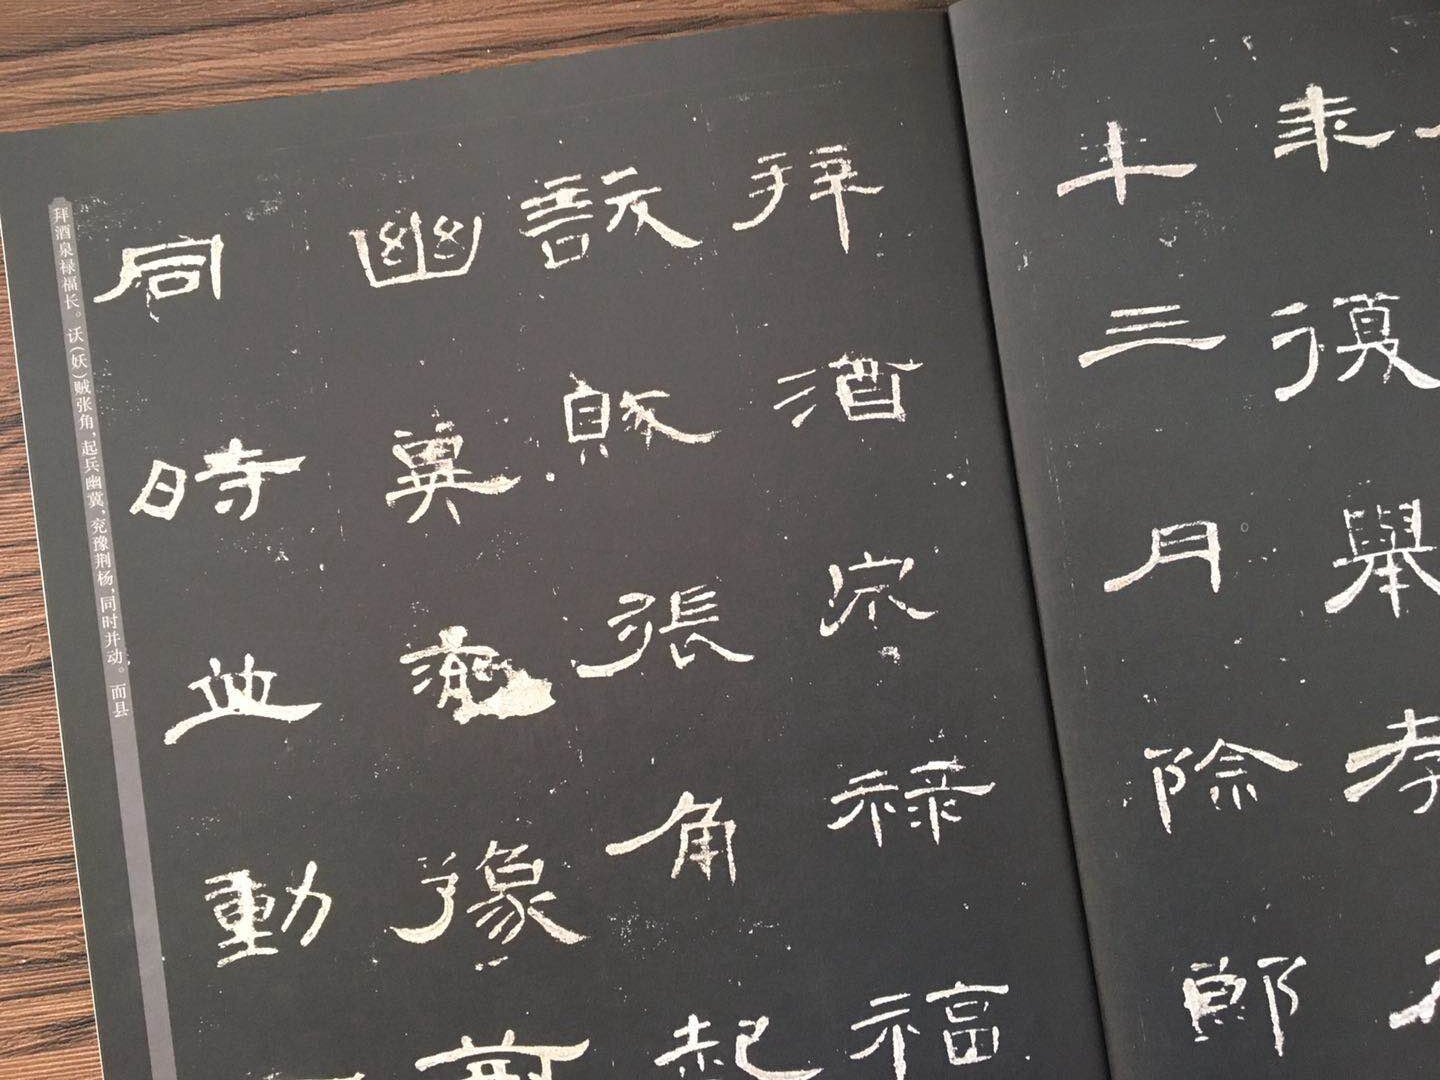 年復舉孝
年三月除郎
拜酒泉祿福
訞賊張角起
幽冀兗豫荊
同時並動
拜酒泉禄福长。訞(妖)贼张角,起兵幽冀,兖豫荆杨,同时并动。而县